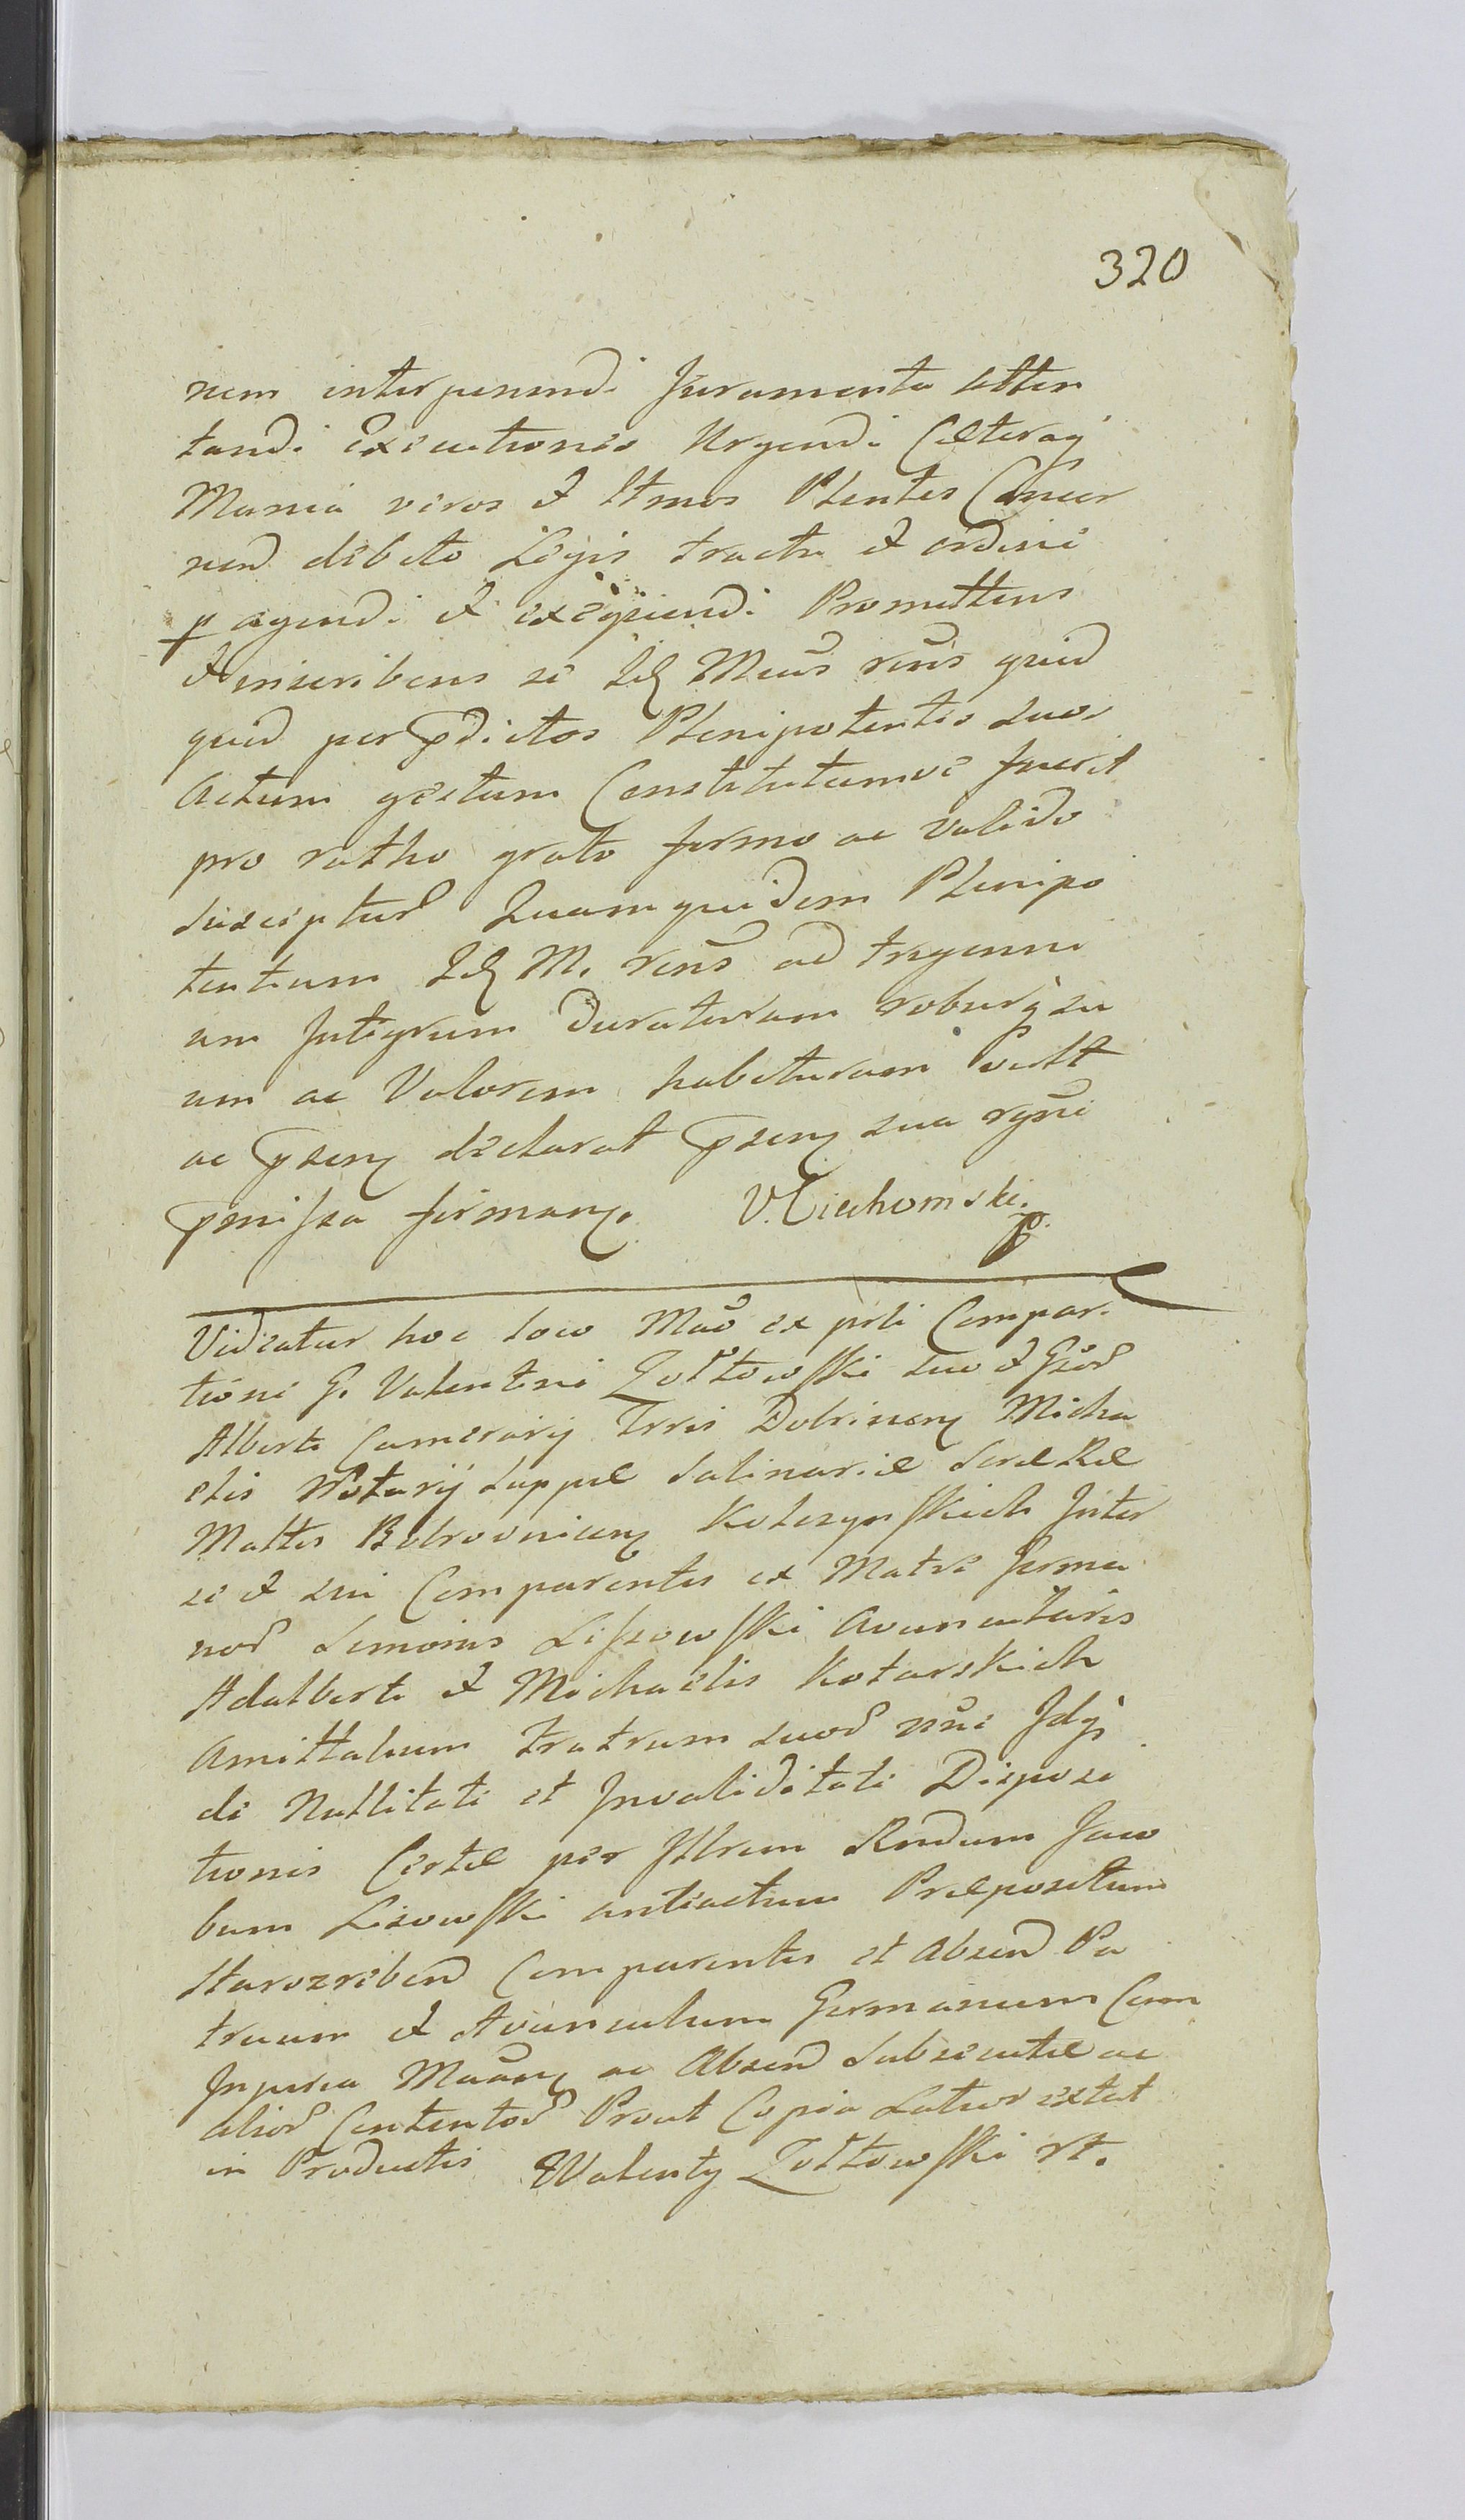 320
nem interponendi Juramenta atten
tandi Executiones Urgendi Cæteraq
Munia veros et Ltmos Plentes Concer
nen debito Legis tractu et ordine
p agendi et excipiendi Promittens
et inscribens se Id Mcus rens quid
quid per pdictos Plenipotentes suos
Actum gestum Constitutumve fuerit
pro ratho grato firmo ac valido
suscepturd Quamquidem Plenipo
tentiam Id M. rens ad trigenni
um Integrum duraturam roburq su
um ac Valorem habituram vult
ac psenq declarat psenq sua rgni
pmissa firmanq. V. Ciechomski. p.
Videatur hoc loco Mao ex prti Compari
tione G. Valentini Zołtowski suo et Gród
Alberti Camerarij Trris Dobrinenq Micha
elis Notarij Suppæ Salinariæ Seræ Ræ
Mattis Bobrovnicenq Kolczynskich Inter
se et sui Comparentis ex Matre Germa
nor Simonis Lissowski Avuncularis
Adalberti et Michaelis Kotarskich
Amittalium fratrum suor nne Idq
de Nullitate et Invaliditate Disposi
tionis Certæ per Illrem Rndum Jaco
bum Lisowski antiactum Præpositum
Starozreben Comparentis et Absen Pa
truum et Avunculum Germanum Cum
Injuria Maanq ac Absen Subsecutæ ac
alior Contentor Prout Copia Latior extat
in Productis Walenty Zołtowski rt.